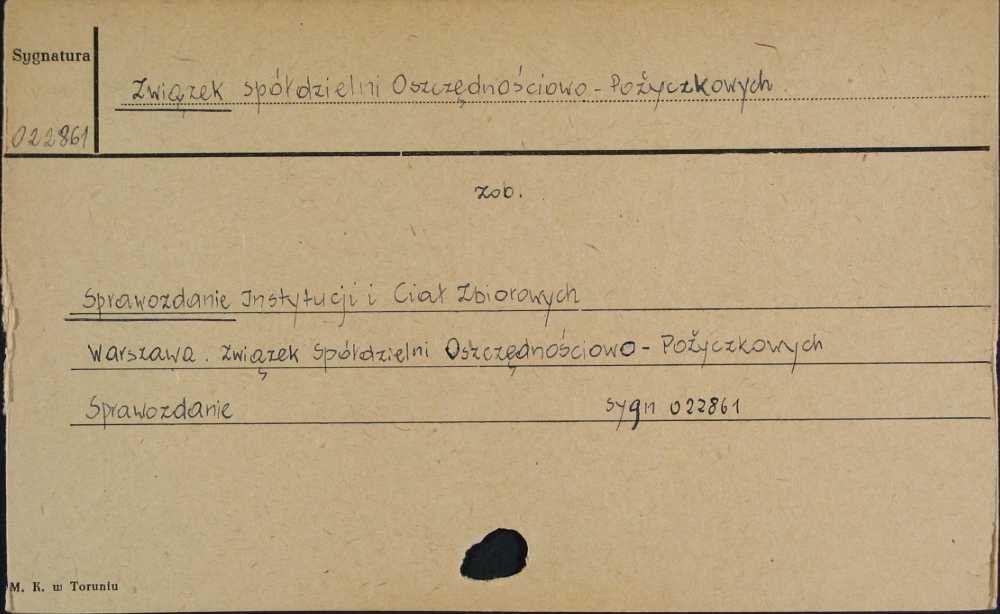 Sygnatura
Związek spółdzielni Oszczędnościowo-Pożyczkowych
022861
zob.
Sprawozdanie Instytucji i Ciał Zbiorowych
Warszawa. Związek Spółdzielni Oszczędnościowo-Pożyczkowych
Sprawozdanie sygn 022861
M. K. w Toruniu